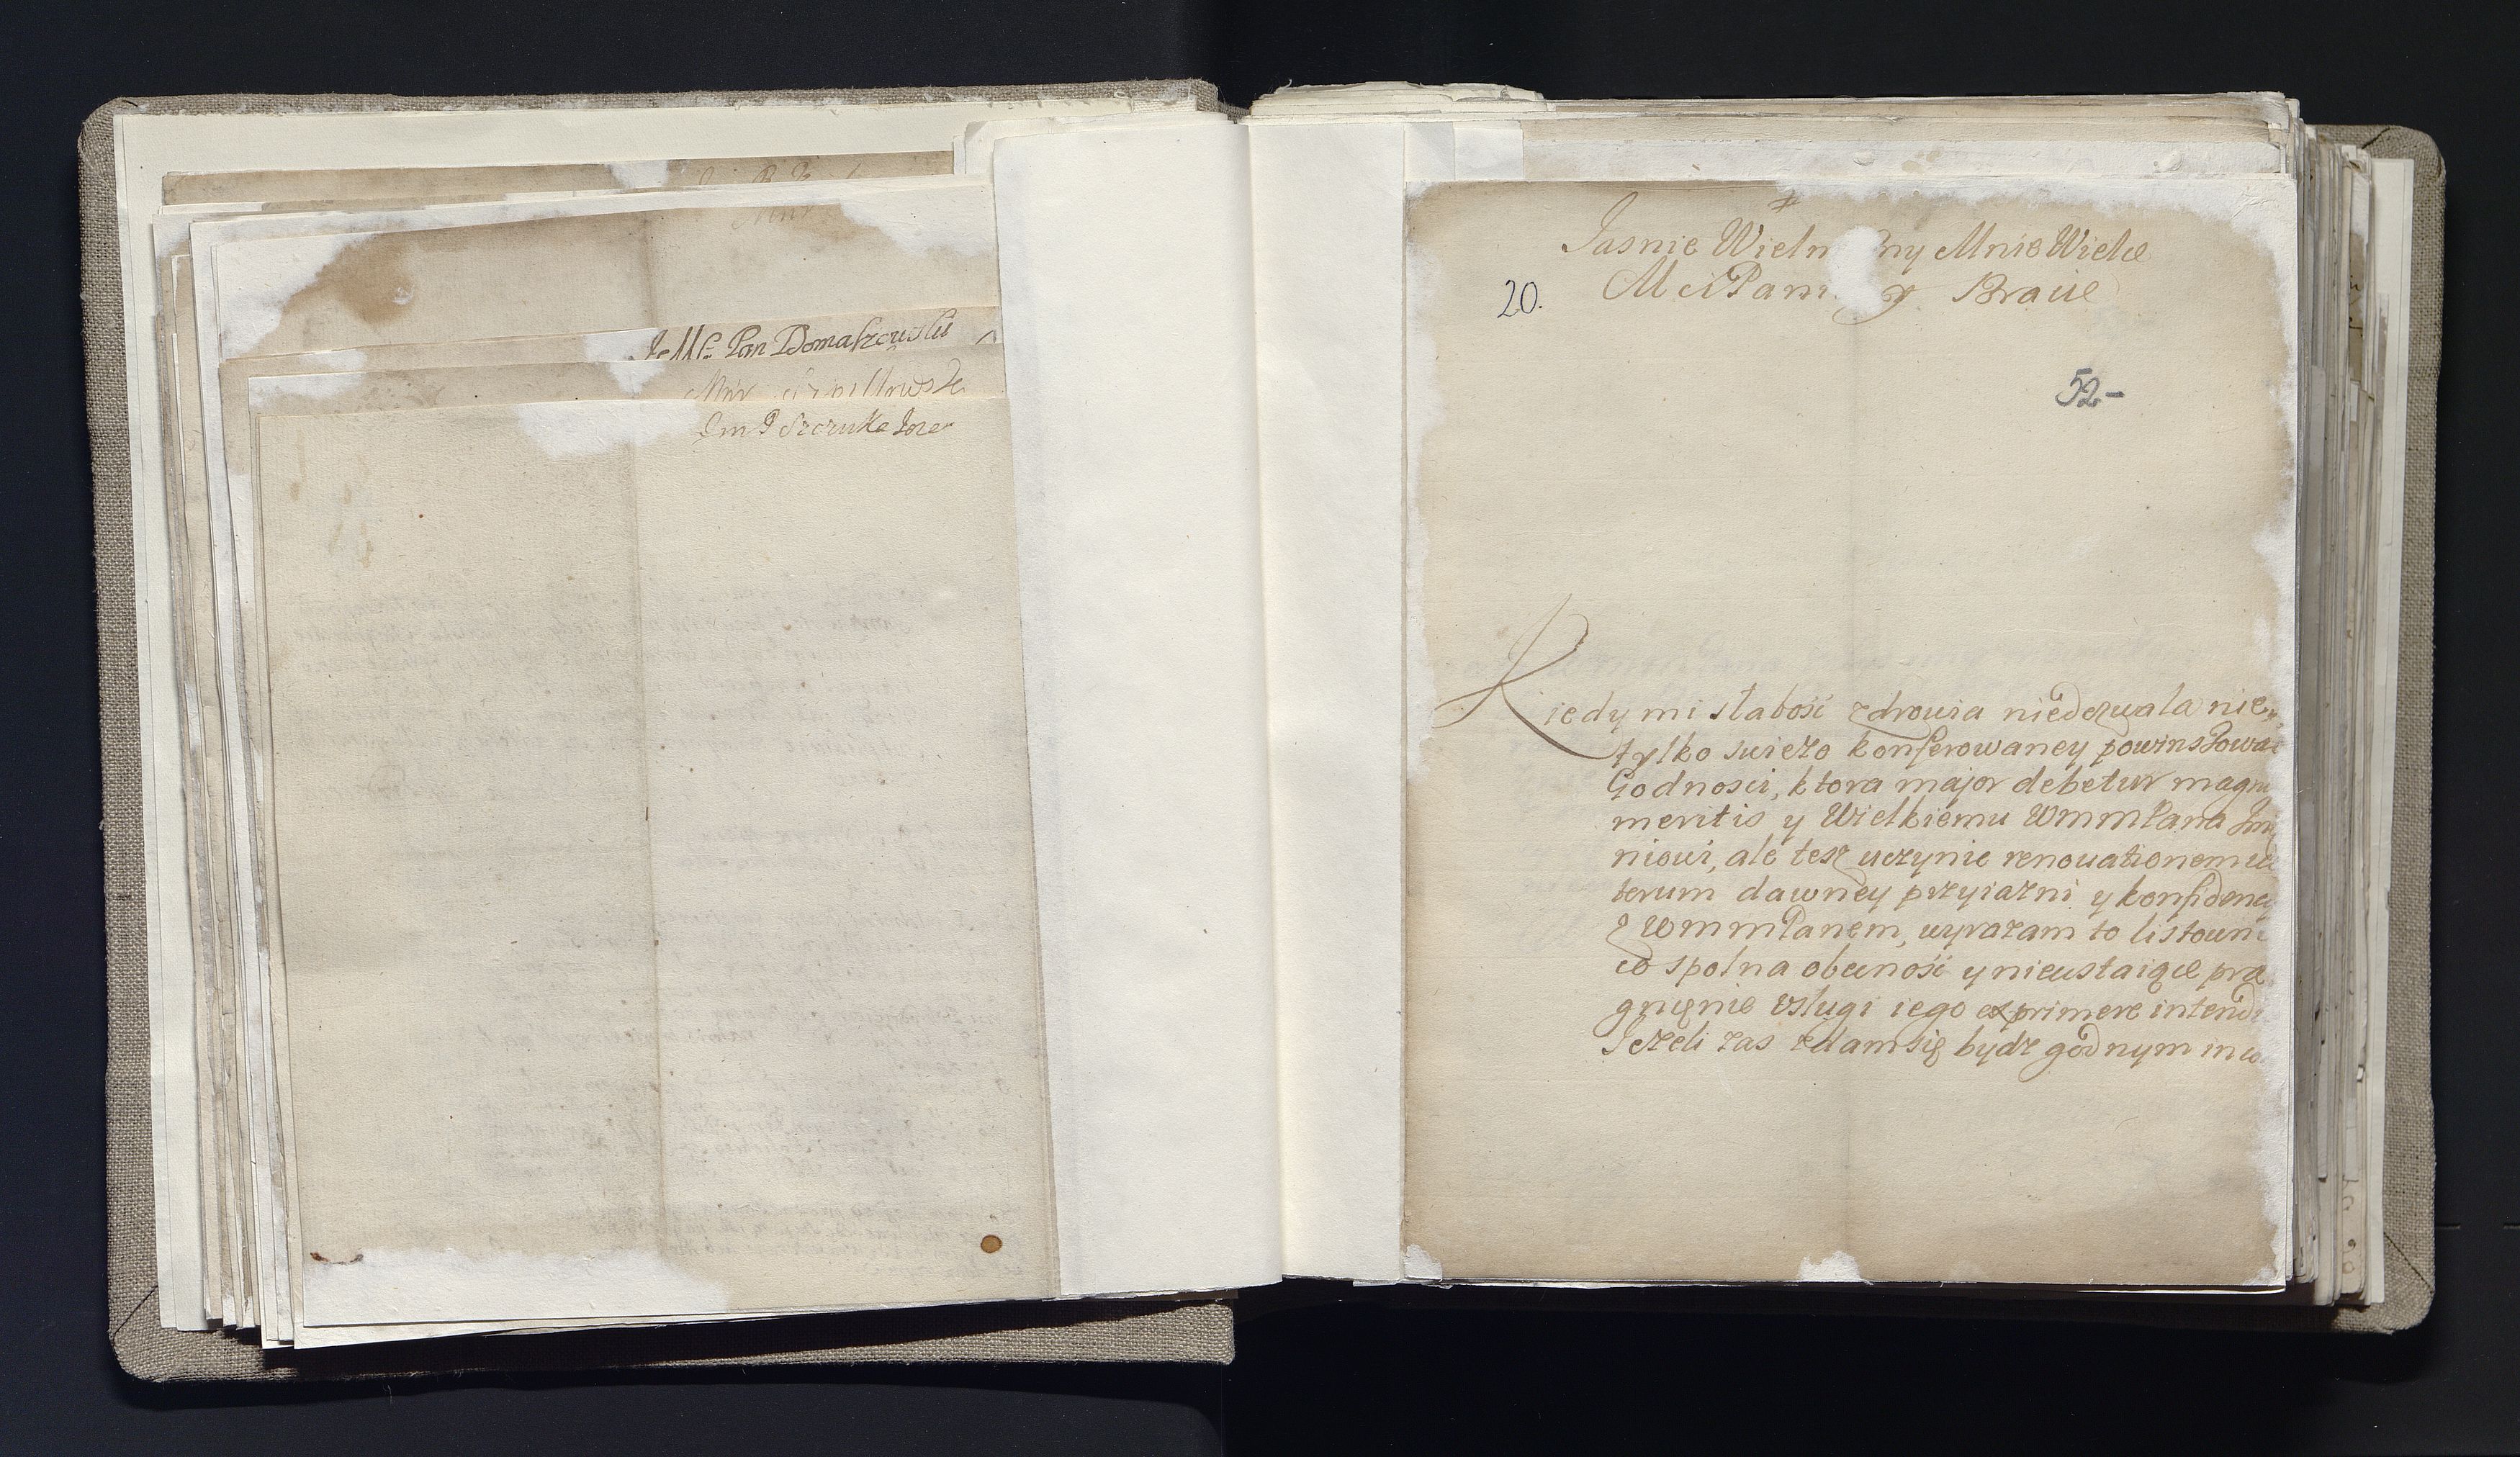 JeMć Pan Domaszewski
Jm P Szczuka
Jasnie Wielm ny Mnie Wielce
Mći Panie y Bracie
20.
52-
Kiedy mi słabość zdrowia niedozwala nie
tylko swiezo konferowaney powinszowac
Godnosci, ktora major debetur magni
meritis y Wielkiemu WmmPana Jm
niowi, ale tesz uczynic renovationem ve
terum dawney przyiazni y konfidency
z WmmPanem, wyrazam to listowni
co spolna obecność y nieustaiące pra
gnienie vsługi iego exprimere intendi
Jezeli zas zdam się bydz godnym in co